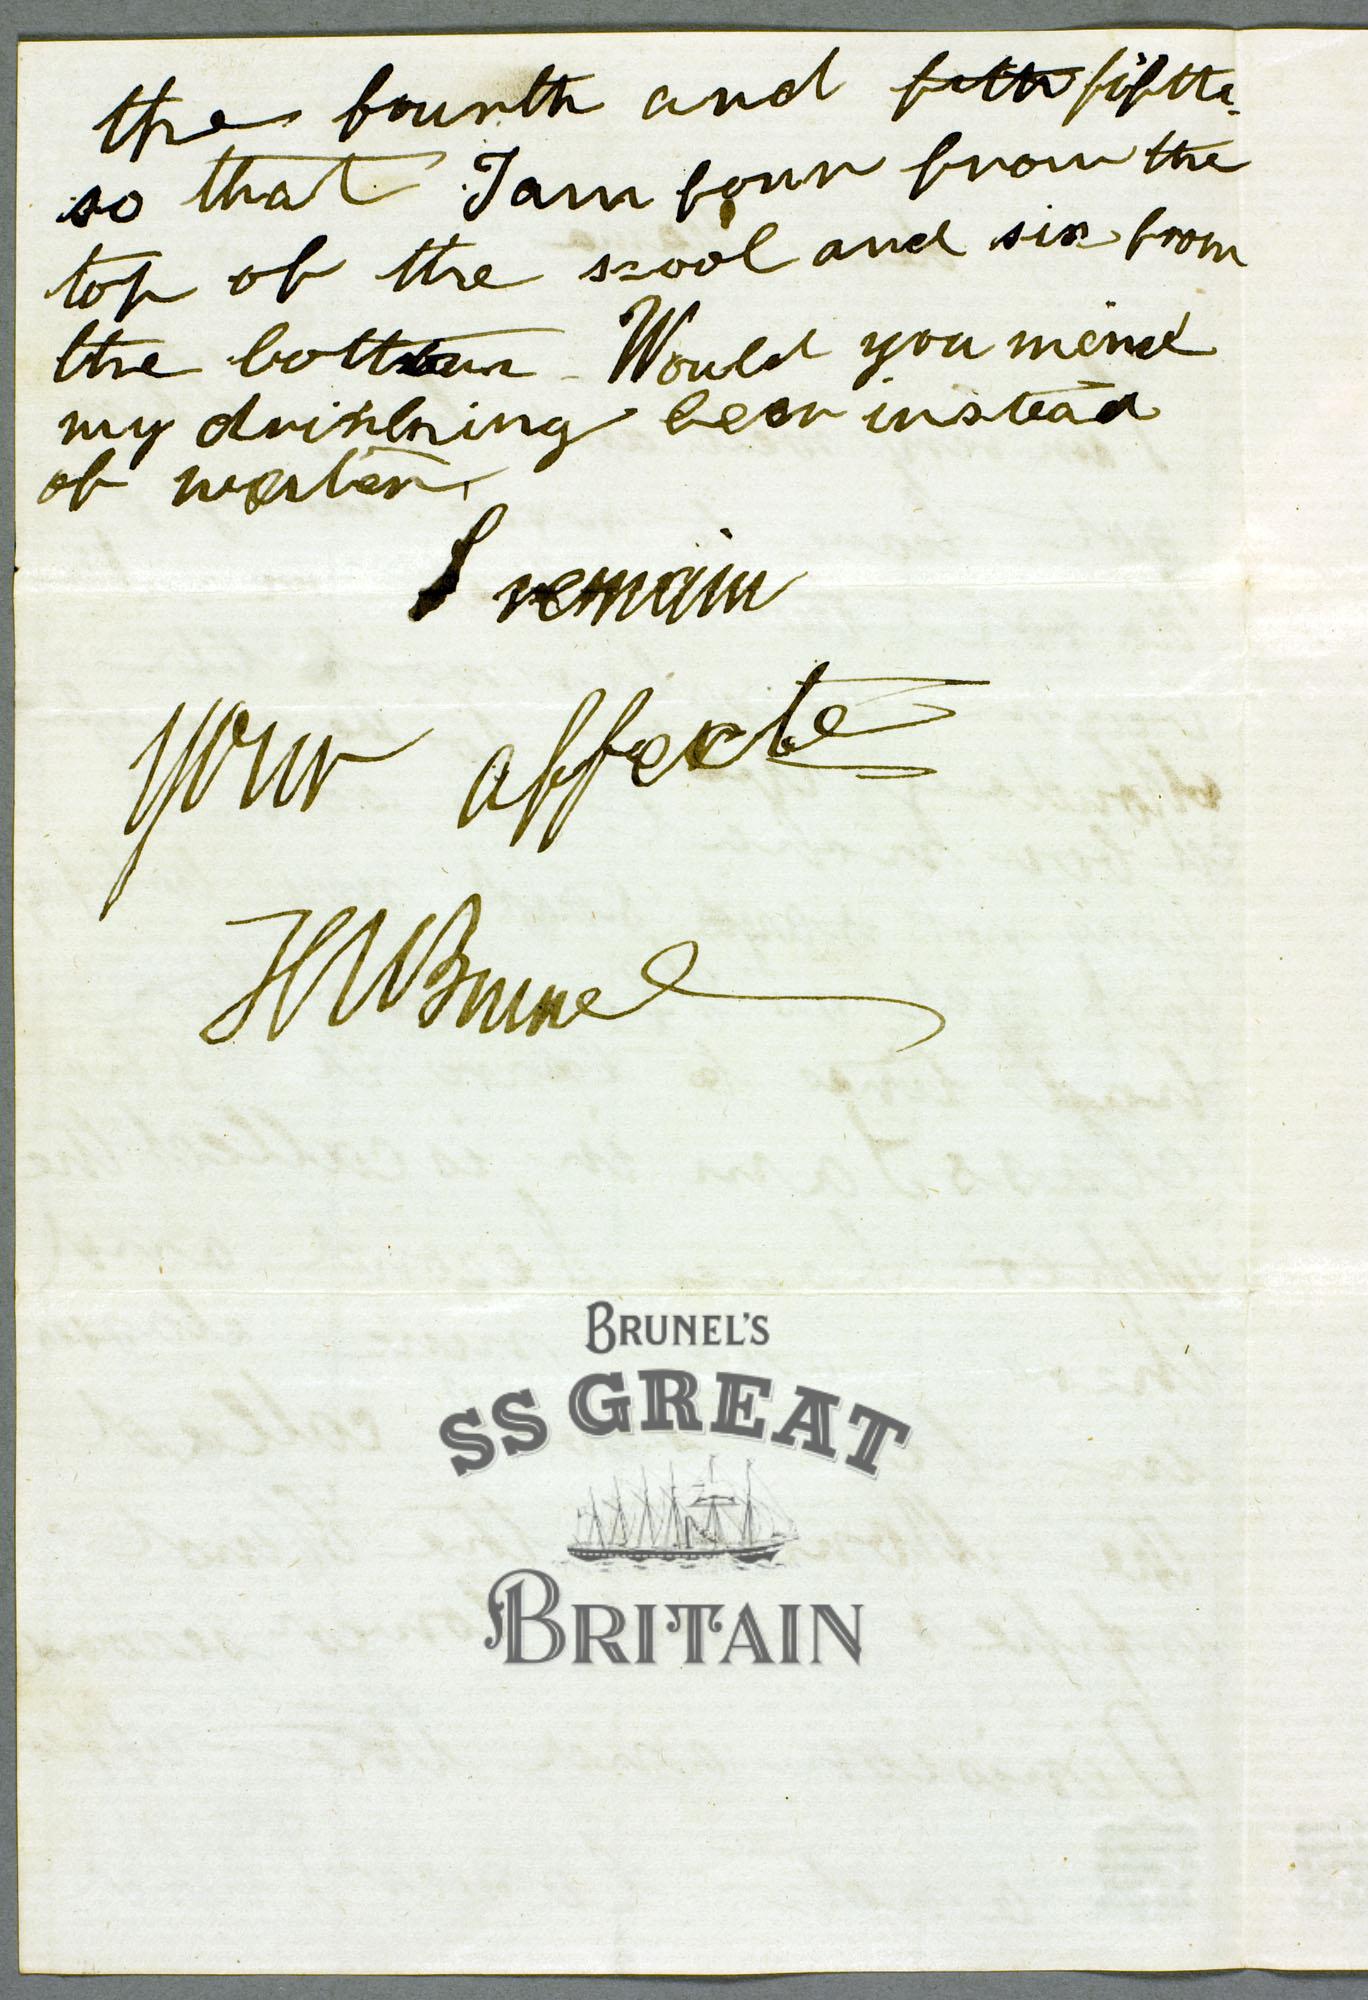 the fourth and fith fifth.
so that I am four from the
top of the scool and six from
the bottom Would you mind
my drinking beer instead
of water.
I remain
your affecte
HMBrunel
BRUNEL'S
SS GREAT
BRITAIN